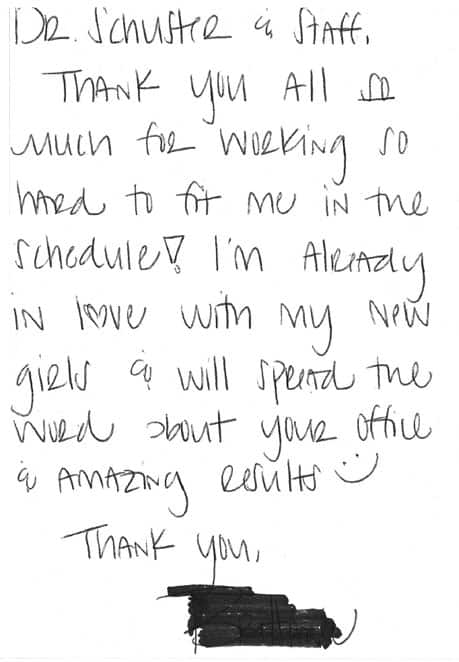 Dr. Schuster & Staff,
Thank you all so
much for working so
hard to fit me in the
schedule! I'm already
in love with my new
girls & will spread the
word about your office
& amazing results :)
Thank you,